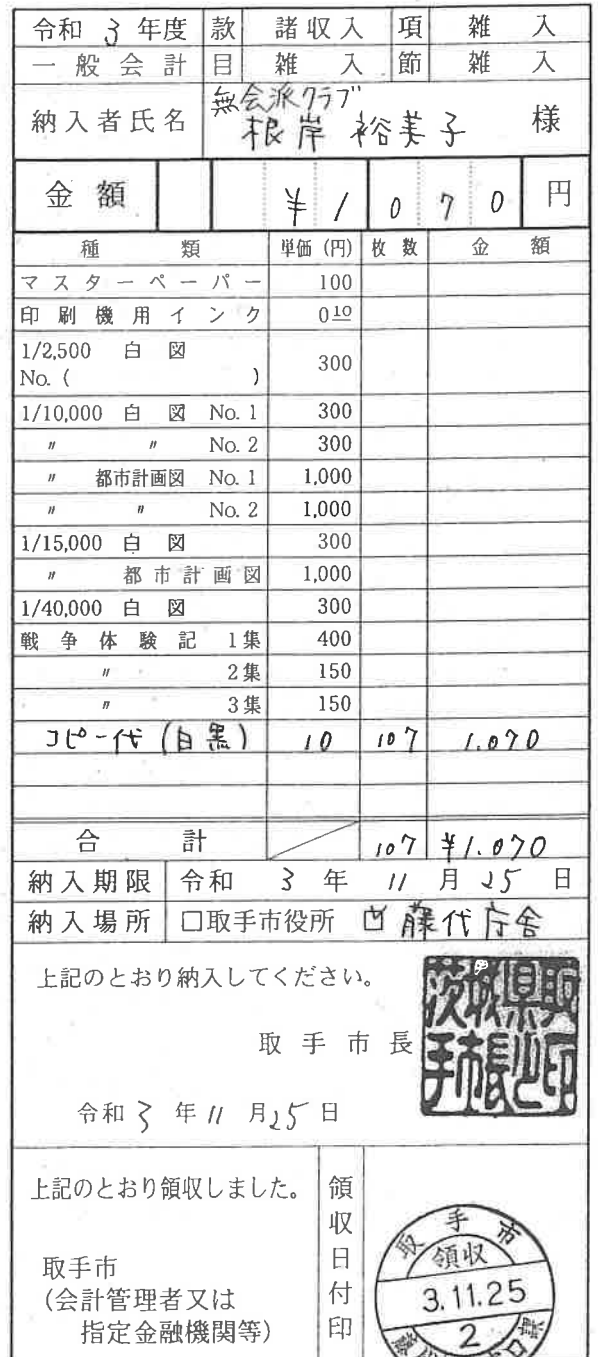 令和 3 年度 款 諸収入 項 雑入
一般会計 目 雑入 節 雑入
無会派クラブ
納入者氏名 根岸 裕美子 様
金額 ¥1070 円
種類 単価(円) 枚数 金額
マスターペーパー 100
印刷機用インク 0.10
1/2,500 白図 300
No.( )
1/10,000 白図 No.1 300
〃 〃 No.2 300
〃 都市計画図 No.1 1,000
〃 〃 No.2 1,000
1/15,000 白図 300
〃 都市計画図 1,000
1/40,000 白図 300
戦争体験記 1集 400
〃 2集 150
〃 3集 150
コピー代(白黒) 10 107 1.070
合計 107 ¥1.070
納入期限 令和 3 年 11 月 25 日
納入場所 □取手市役所 ☑藤代庁舎
上記のとおり納入してください。
取手市長
茨城県取手市長之印
令和 3 年 11 月 25 日
上記のとおり領収しました。
取手市
(会計管理者又は
指定金融機関等)
領収日付印
取手市
領収
3.11.25
2